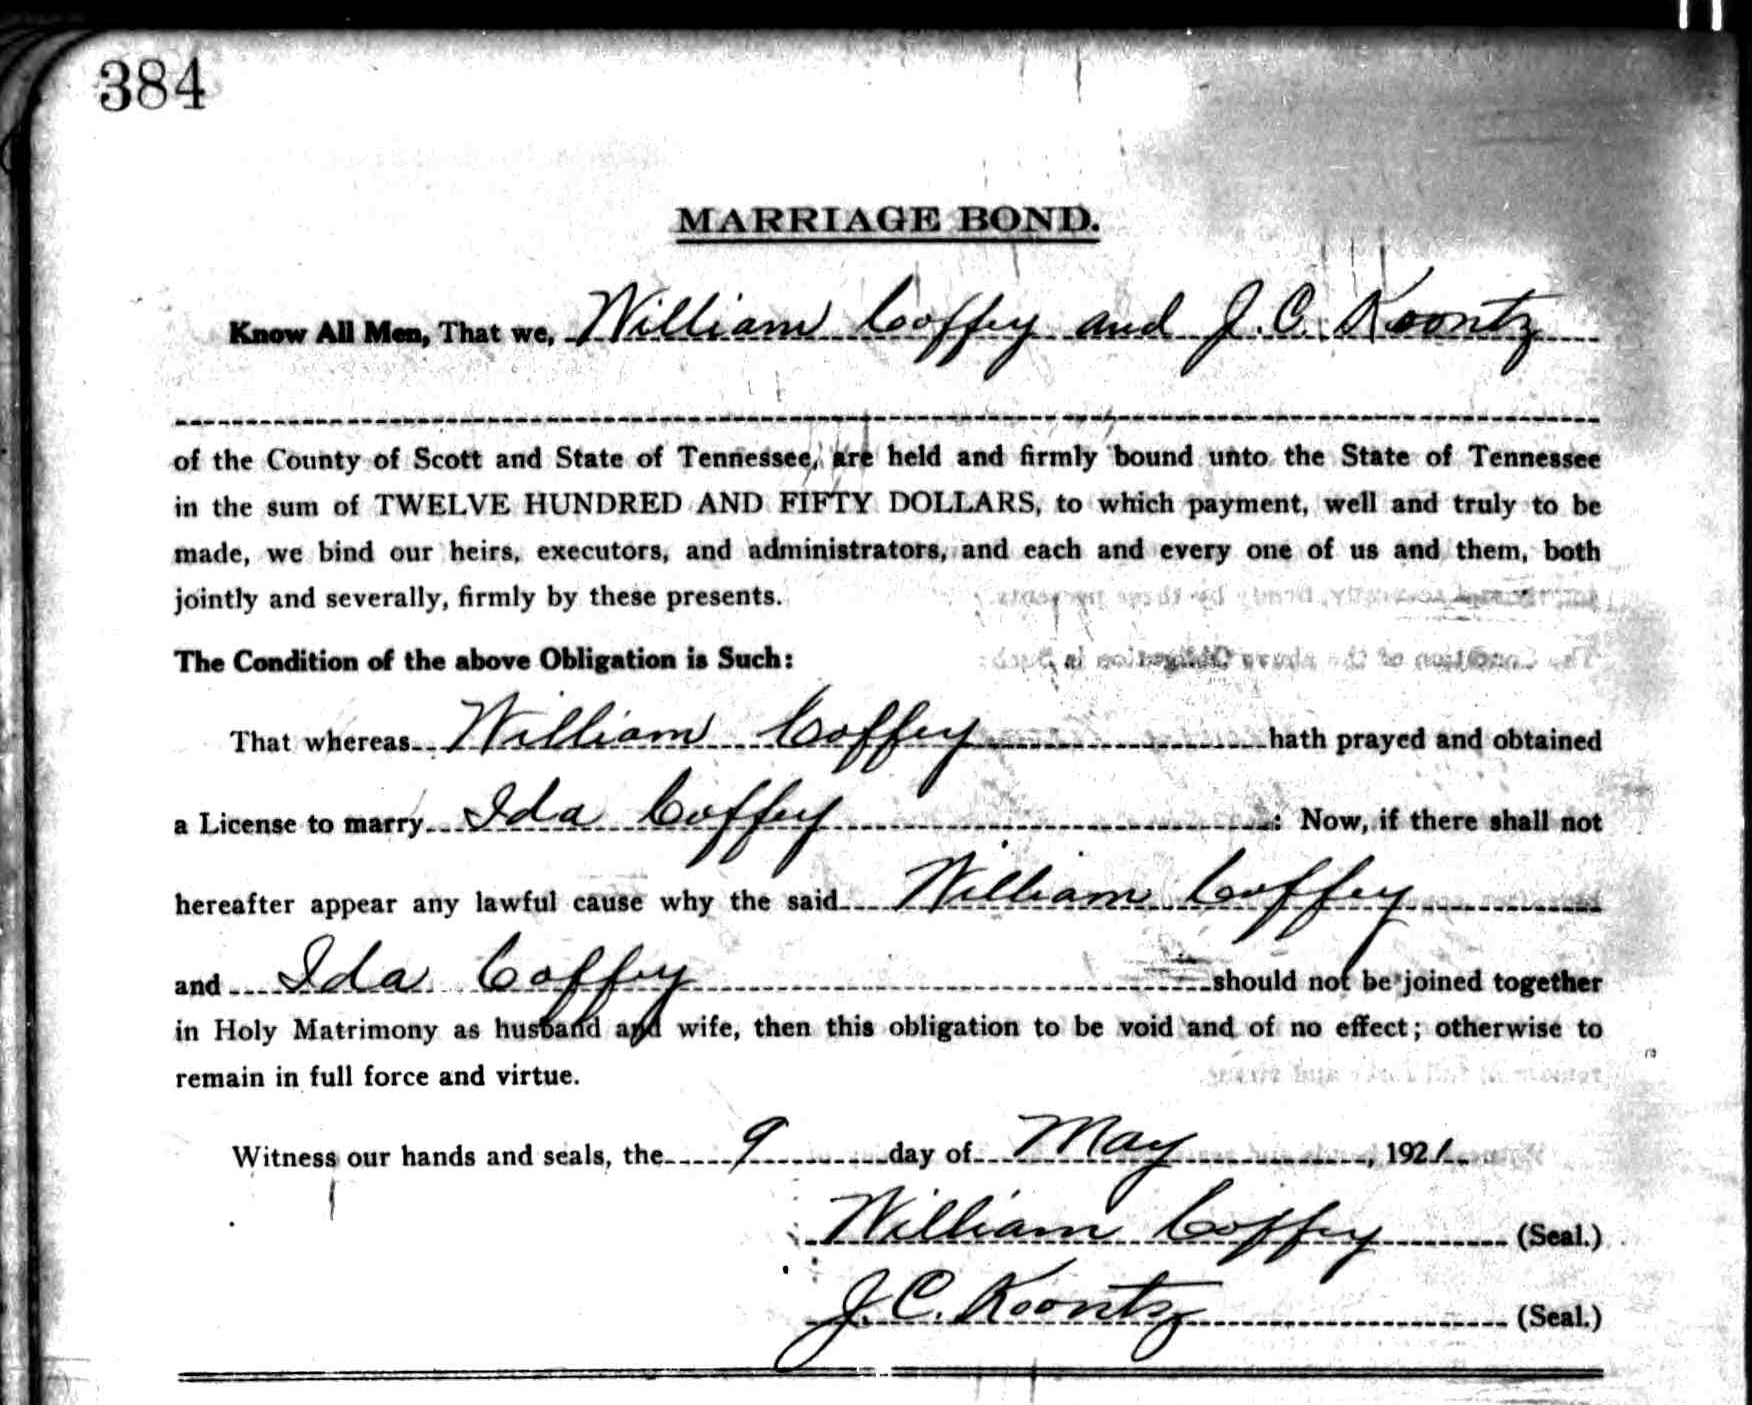 384
MARRIAGE BOND.
Know All Men, That we, William Coffey and J. C. Koontz
of the County of Scott and State of Tennessee, are held and firmly bound unto the State of Tennessee
in the sum of TWELVE HUNDRED AND FIFTY DOLLARS, to which payment, well and truly to be
made, we bind our heirs, executors, and administrators, and each and every one of us and them, both
jointly and severally, firmly by these presents.
The Condition of the above Obligation is Such:
That whereas William Coffey hath prayed and obtained
a License to marry Ida Coffey : Now, if there shall not
hereafter appear any lawful cause why the said William Coffey
and Ida Coffey should not be joined together
in Holy Matrimony as husband and wife, then this obligation to be void and of no effect; otherwise to
remain in full force and virtue.
Witness our hands and seals, the 9 day of May, 1921.
William Coffey (Seal.)
J. C. Koontz (Seal.)